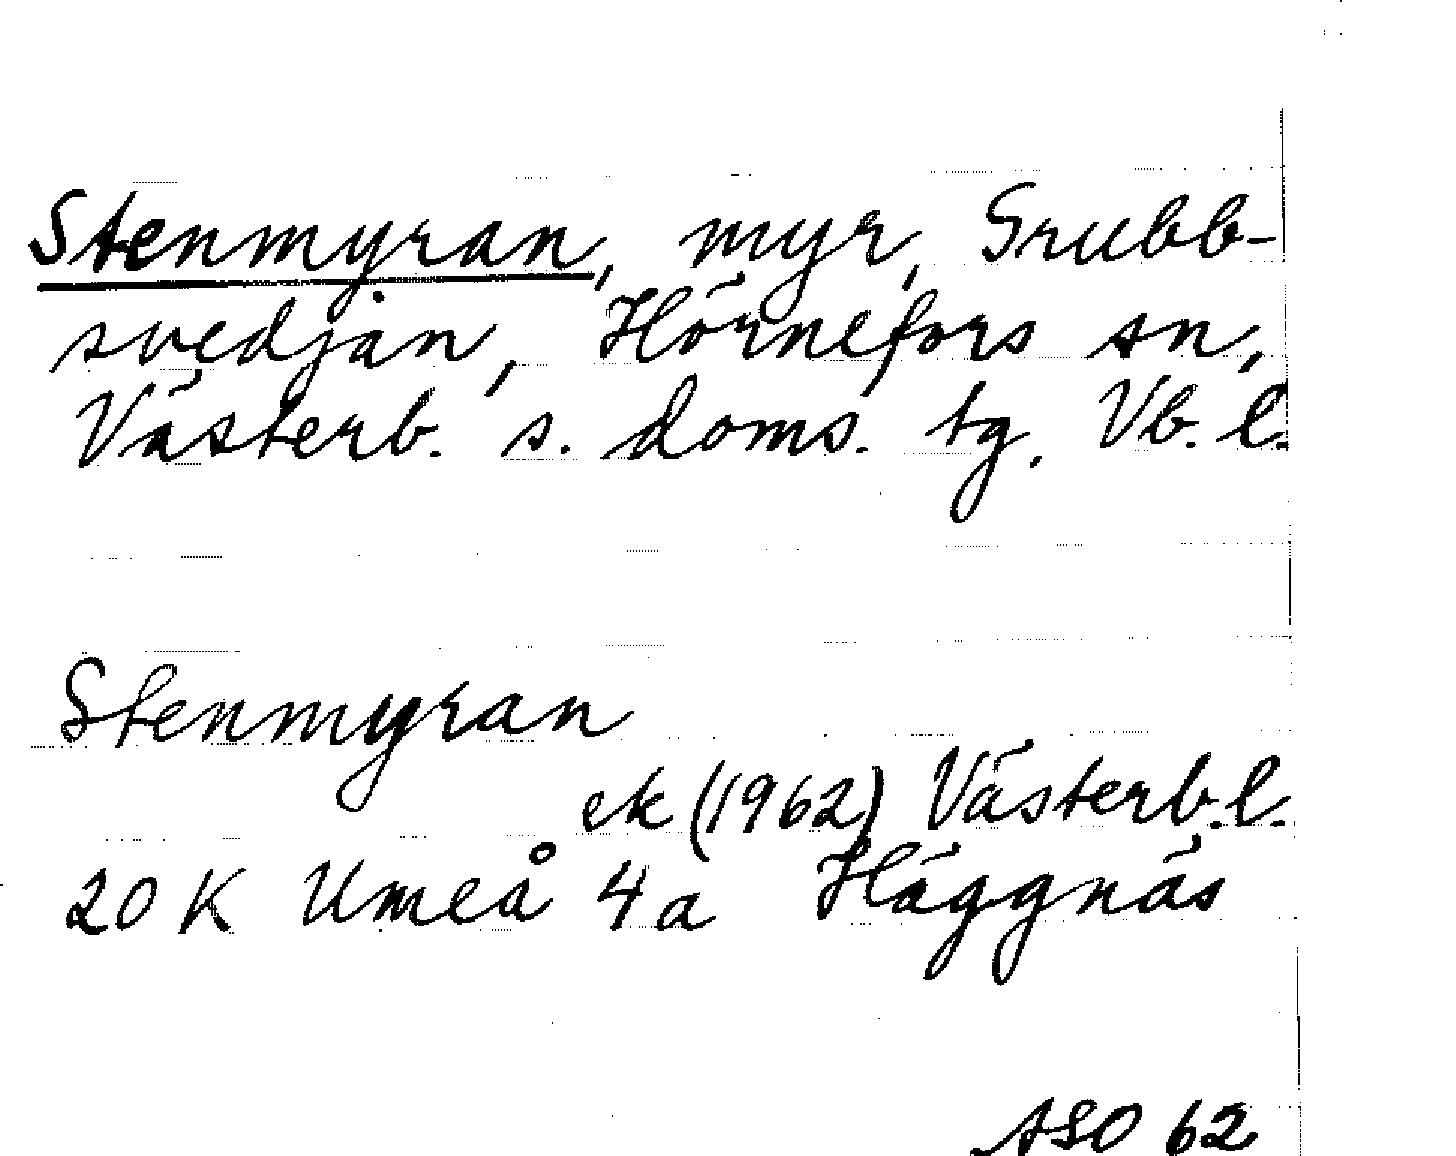 Stenmyran, myr, Grubb-
svedjan, Hörnefors sn,
Västerb. s. doms. tg. Vb. l.
Stenmyran
ek (1962) Västerb. l.
20 K Umeå 4a Häggnäs
ASO 62